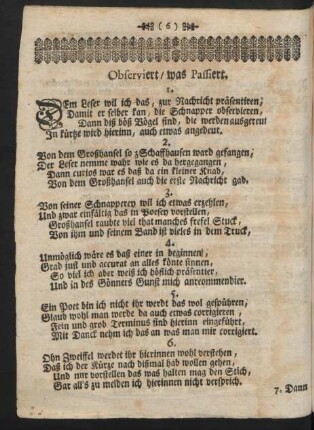 ( 6 )
Observiert / was Passiert.
1.
DEm Leser wil ich das, zur Nachricht präsentiren;
Damit er selber kan, die Schnapper observieren,
Dann diß böß Vögel sind, die werden ausgereut
In kürtze wird hierinn, auch etwas angedeut.
2.
Von dem Großhansel so z Schaffhausen ward gefangen;
Der Leser nemme wahr wie es da hergegangen,
Dann curios war es daß da ein kleiner Knab,
Von dem Großhansel auch die erste Nachricht gab.
3.
Von seiner Schnapperey wil ich etwas erzehlen,
Und zwar einfältig das in Poesey vorstellen,
Großhansel raubte viel that manches frefel Stuck,
Von ihm und seinem Band ist vieles in dem Truck,
4.
Unmöglich wäre es daß einer in beginnen,
Grad just und accurat an alles könte sinnen,
So viel ich aber weiß ich höflich präsentier,
Und in des Gönners Gunst mich anrecommendier.
5.
Ein Poet bin ich nicht ihr werdt das wol gespühren,
Glaub wohl man werde da auch etwas corrigieren,
Fein und grob Terminus sind hierinn eingeführt,
Mit Danck nehm ich das an was man mir corrigiert.
6.
Ohn Zweiffel werdet ihr hierinnen wohl verstehen,
Daß ich der Kürtze nach dißmal hab wollen gehen,
Und nur vorstellen das was halten mag den Stich,
Gar all's zu melden ich hierinnen nicht versprich.
7. Dann